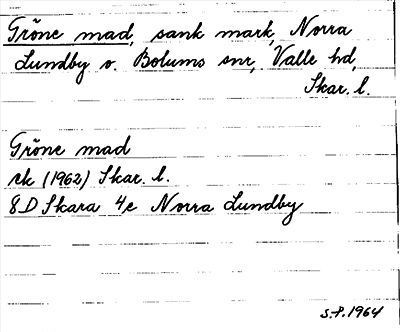 Gröne mad, sank mark, Norra
Lundby o. Bolums snr, Valle hd,
Skar. l.
Gröne mad
rk (1962) Skar. l.
8D Skara 4e Norra Lundby
S.P. 1964